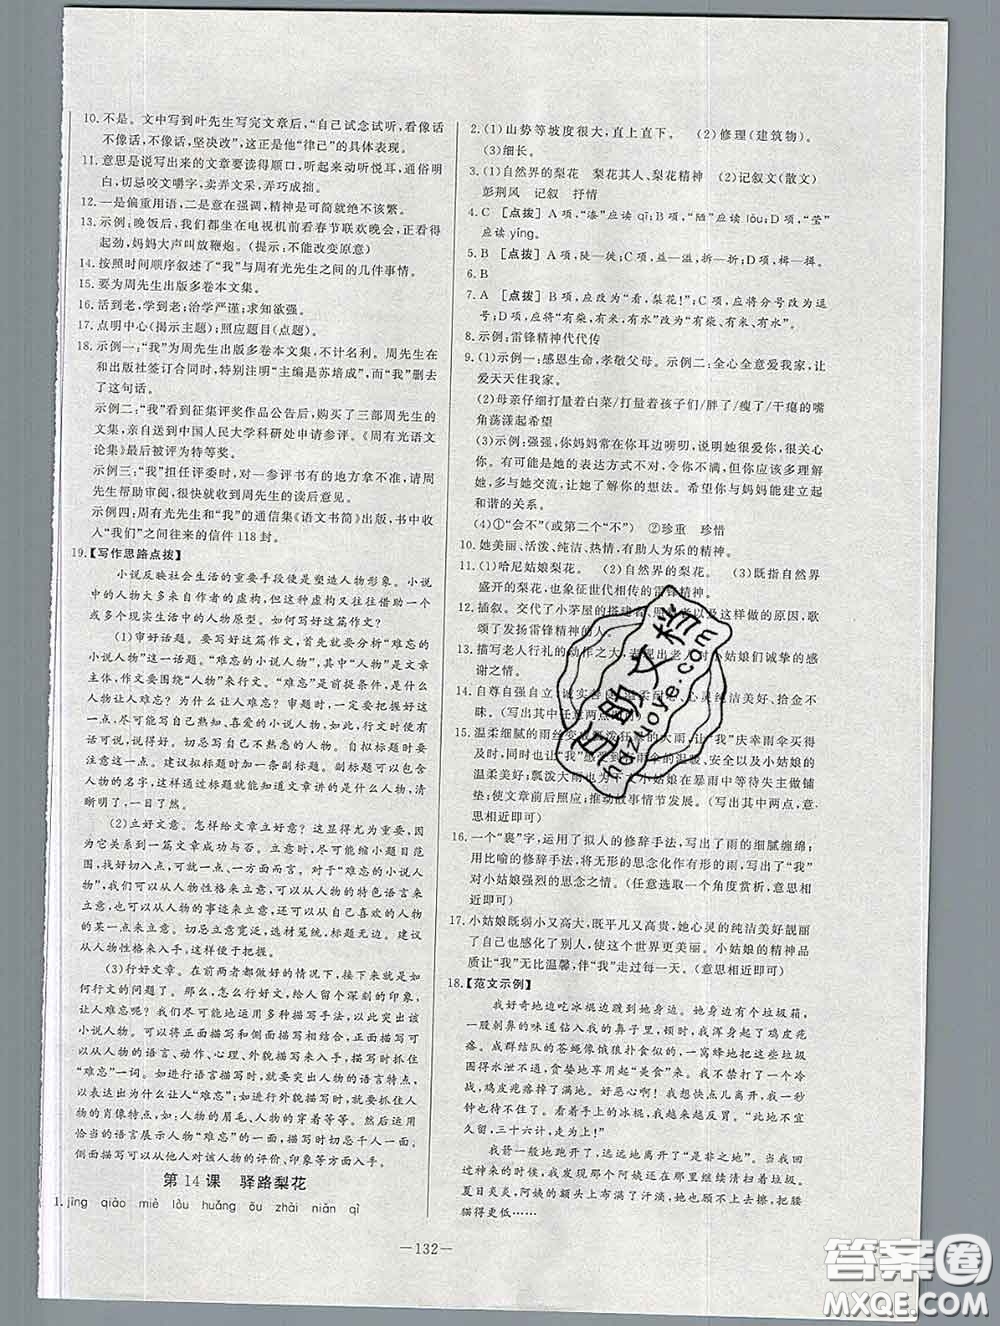 10. 不是。文中写到叶先生写完文章后，“自己试念试听，看像话
不像话，不像话，坚决改”，这正是他“律己”的具体表现。
11. 意思是说写出来的文章要读得顺口，听起来动听悦耳，通俗明
白，切忌咬文嚼字，卖弄文采，弄巧成拙。
12. 一是偏重用语，二是意在强调，精神是可就绝不该繁。
13. 示例：晚饭后，我们都坐在电视机前看春节联欢晚会，正看得
起劲，妈妈大声叫放鞭炮。（提示：不能改变原意）
14. 按照时间顺序叙述了“我”与周有光先生之间的几件事情。
15. 要为周先生出版多卷本文集。
16. 活到老，学到老；治学严谨；求知欲强。
17. 点明中心（揭示主题）；照应题目（点题）。
18. 示例一：“我”为周先生出版多卷本文集，不计名利。周先生在
和出版社签订合同时，特别注明“主编是苏培成”，而“我”删去
了这句话。
示例二：“我”看到征集评奖作品公告后，购买了三部周先生的
文集，亲自送到中国人民大学科研处申请参评。《周有光语文
论集》最后被评为特等奖。
示例三：“我”担任评委时，对一参评书有的地方拿不准，请周
先生帮助审阅，很快就收到周先生的读后意见。
示例四：周有光先生和“我”的通信集《语文书简》出版，书中收
入“我们”之间往来的信件118封。
19. 【写作思路点拨】
小说反映社会生活的重要手段便是塑造人物形象。小说
中的人物大多来自作者的虚构，但这种虚构又往往借助一个
或多个现实生活中的人物原型。如何写好这篇作文？
(1)审好话题。要写好这篇作文，首先就要分析“难忘的
小说人物”这一话题。“难忘的小说人物”，其中“人物”是文章
主体，作文要围绕“人物”来行文。“难忘”是前提条件，是什么
人物让人难忘？为什么让人难忘？审题时，一定要把握好这
一点。尽可能写自己熟悉、喜爱的小说人物，如此，行文时便有
话可说，说得好。切忌写自己不熟悉的人物。自拟标题时要
注意这一点。建议拟标题时加一条副标题。副标题可以概括
出你要写的人物，这样，读者从标题就能知道文章讲的是什么人物，
清晰明了，一目了然。
(2)立好文意。怎样给文章立好意？这显得尤为重要，因
为它关系到一篇文章成功与否。立意时，尽可能缩小题目范
围，找好切入点，切入点小，文章才能写好。对于“难忘的小说人
物”来说，可以从人物性格来立意，可以从人物的特色语言来立
意，也可以从人物的事迹来立意，还可以从自己喜欢的人物的
某一点来立意。切忌立意宽泛，选材笼统，标题无边。建议从
人物性格来入手，这样，文章立意便于把握。
(3)行好文章。在前面两者都做好的情况下，接下来就是
如何行文的问题了。怎样行文才能给人留下深刻的印象，
让人难忘呢？我们尽可能地运用多种描写手法，尽力突出这
个小说人物。可以将正面描写和侧面描写结合，正面描写时可以
从人物的语言、动作、心理、外貌描写来入手，描写时抓住“难
忘”一词。如进行语言描写时，就要突出人物的语言特点，这样
达出为什么让人“难忘”；如进行外貌描写时，就要抓住
人物的肖像特点，如：人物的眉毛、人物的穿着等等。然后运用
恰当的语言展示人物“难忘”的一面，描写时切忌千人一面。
侧面描写时可以从他人对该人物的评价、印象等方面入手。
第14课 驿路梨花
1. jīng qiào miè lòu huǎng ōu zhài niǎn qì
2. (1)山势等坡度很大，直上直下。 (2)修理（建筑物）。
(3)细长。
3. (1)自然界的梨花 梨花其人、梨花精神 (2)记叙文（散文）
彭荆风 记叙 抒情
4. C [点拨]A项，“漆”应读qī；B项，“陋”应读lòu；D项，“莹”
应读yíng。
5. B [点拨]A项，陡—徒；C项，益—溢，折—拆；D项，楫—揖。
6. B
7. A [点拨]B项，应改为“看，梨花！”；C项，应将分号改为逗
号；D项，应将“有柴，有米，有水”改为“有柴、有米、有水”。
8. 示例：雷锋精神代代传
9. (1)示例一：感恩生命，孝敬父母。示例二：全心全意爱我家，让
爱天天住我家。
(2)母亲仔细打量着白菜/打量着孩子们/胖了/瘦了/干瘪的嘴
角荡漾起希望
(3)示例：强强，你妈妈常在你耳边唠叨，说明她很爱你，很关心你。
有可能因为她的表达方式不对，令你不满，但你应该多多理解
她，多与她交流，让她了解你的想法。希望你与妈妈能建立
和谐的关系。
(4)①“会不”（或第二个“不”） ②珍重 珍惜
10. 她美丽、活泼、纯洁、热情，有助人为乐的精神。
11. (1)哈尼姑娘梨花。 (2)自然界的梨花。 (3)既指自然界
盛开的梨花，也象征世代相传的雷锋精神。
12. 插叙。交代了小茅屋的搭建者、照料者以及这样做的原因，歌
颂了发扬雷锋精神的人。
13. 描写老人行礼的动作之大，表现出老人对小姑娘们诚挚的感
谢之情。
14. 自尊自强自立、诚实善良、温柔甜美、心灵纯洁美好、拾金不
昧。（写出其中任意两点即可）
15. 温柔细腻的雨丝变成瓢泼狂暴的大雨，让“我”庆幸雨伞买得
及时，同时也让“我”感受到雨伞的温暖、安全以及小姑娘的
温柔美好；瓢泼大雨也为下文小姑娘在暴雨中等待失主做铺
垫；使文章前后照应；推动故事情节发展。（写出其中两点，意
思相近即可）
16. 一个“裹”字，运用了拟人的修辞手法，写出了雨的细腻缠绵；
用比喻的修辞手法，将无形的思念化作有形的雨，写出了“我”
对小姑娘强烈的思念之情。（任意选取一个角度赏析，意思相
近即可）
17. 小姑娘既弱小又高大，既平凡又高贵，她心灵的纯洁美好靓丽
了自己也感化了别人，使这个世界更美丽。小姑娘的精神品
质让“我”无比温馨，伴“我”走过每一天。（意思相近即可）
18. 【范文示例】
我好奇地边吃冰棍边踱到她身边。她的身边有个垃圾箱，
一股刺鼻的味道钻入我的鼻子里，顿时，我浑身起了鸡皮疙
瘩。成群结队的苍蝇像饿狼扑食一般，一窝蜂地把这些垃圾
团围得水泄不通，贪婪地享用起这“美食”来。我被吓得魂不
附体，鸡皮疙瘩掉了满地。好恶心啊！我想快点儿离去，但脚却
不听使唤。看着手上的冰棍，我越发反胃。“此地不宜
久留，三十六计，走为上！”
我箭一般地跑开了，远远地离开了这“是非之地”。等我回
过神来的时候，发现那个阿姨还在继续清扫着垃圾。
夏日炎炎，阿姨的衣服湿了，汗滴，她也顾不上去擦，把腰
猫得更低……
—132—
互助文档
hdzuoye.com
答案圈
MXQE.COM